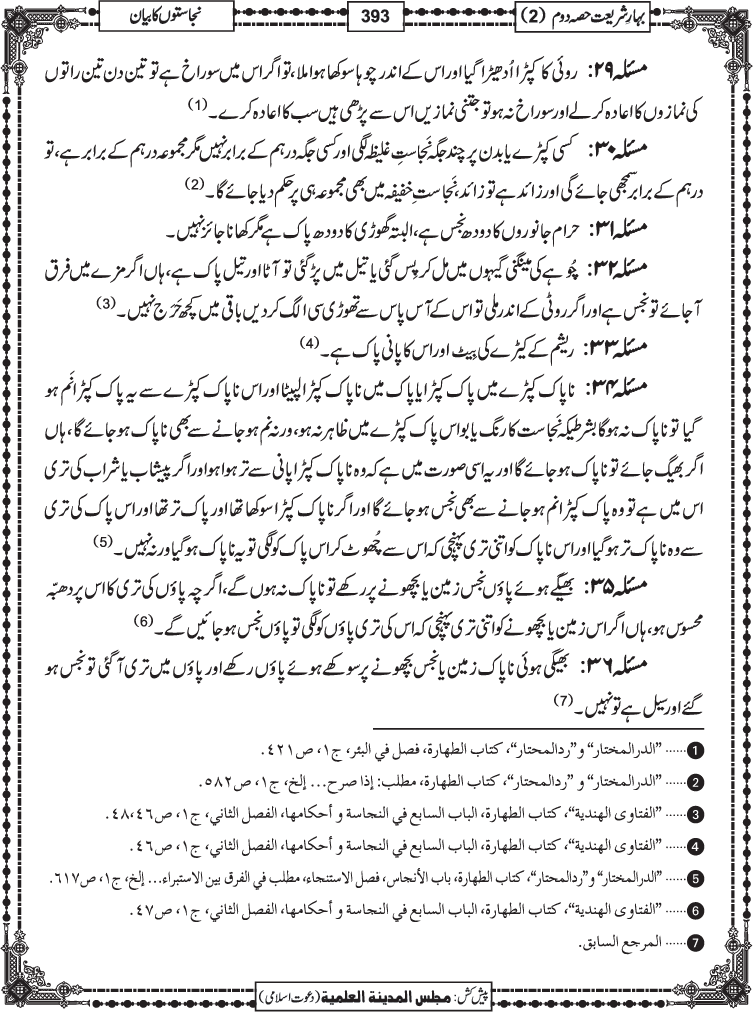 بہارِ شریعت حصہ دوم (2)
393
نجاستوں کا بیان
مسئلہ ۲۹: روئی کا کپڑا اُدھیڑا گیا اور اس کے اندر چوہا سوکھا ہوا ملا، تو اگر اس میں سوراخ ہے تو تین دن تین راتوں
کی نمازوں کا اعادہ کرلے اور سوراخ نہ ہو تو جتنی نمازیں اس سے پڑھی ہیں سب کا اعادہ کرے۔ (1)
مسئلہ ۳۰: کسی کپڑے یا بدن پر چند جگہ نَجاستِ غلیظہ لگی اور کسی جگہ درہم کے برابر نہیں مگر مجموعہ درہم کے برابر ہے، تو
درہم کے برابر سمجھی جائے گی اور زائد ہے تو زائد، نَجاستِ خفیفہ میں بھی مجموعہ ہی پر حکم دیا جائے گا۔ (2)
مسئلہ ۳۱: حرام جانوروں کا دودھ نجس ہے، البتہ گھوڑی کا دودھ پاک ہے مگر کھانا جائز نہیں۔
مسئلہ ۳۲: چُوہے کی مینگنی گیہوں میں مل کر پس گئی یا تیل میں پڑ گئی تو آٹا اور تیل پاک ہے، ہاں اگر مزے میں فرق
آجائے تو نجس ہے اور اگر روٹی کے اندر ملی تو اس کے آس پاس سے تھوڑی سی الگ کردیں باقی میں کچھ حَرَج نہیں۔ (3)
مسئلہ ۳۳: ریشم کے کیڑے کی بِیٹ اور اس کا پانی پاک ہے۔ (4)
مسئلہ ۳۴: ناپاک کپڑے میں پاک کپڑا یا پاک میں ناپاک کپڑا لپیٹا اور اس ناپاک کپڑے سے یہ پاک کپڑا نَم ہو
گیا تو ناپاک نہ ہوگا بشرطیکہ نَجاست کا رنگ یا بو اس پاک کپڑے میں ظاہر نہ ہو، ورنہ نم ہوجانے سے بھی ناپاک ہوجائے گا، ہاں
اگر بھیگ جائے تو ناپاک ہوجائے گا اور یہ اسی صورت میں ہے کہ وہ ناپاک کپڑا پانی سے تر ہوا ہو اور اگر پیشاب یا شراب کی تری
اس میں ہے تو وہ پاک کپڑا نم ہوجانے سے بھی نجس ہوجائے گا اور اگر ناپاک کپڑا سوکھا تھا اور پاک تر تھا اور اس پاک کی تری
سے وہ ناپاک تر ہوگیا اور اس ناپاک کو اتنی تری پہنچی کہ اس سے چُھوٹ کر اس پاک کو لگی تو یہ ناپاک ہوگیا ورنہ نہیں۔ (5)
مسئلہ ۳۵: بھیگے ہوئے پاؤں نجس زمین یا بچھونے پر رکھے تو ناپاک نہ ہوں گے، اگرچہ پاؤں کی تری کا اس پر دھبّہ
محسوس ہو، ہاں اگر اس زمین یا بچھونے کو اتنی تری پہنچی کہ اس کی تری پاؤں کو لگی تو پاؤں نجس ہوجائیں گے۔ (6)
مسئلہ ۳۶: بھیگی ہوئی ناپاک زمین یا نجس بچھونے پر سوکھے ہوئے پاؤں رکھے اور پاؤں میں تری آگئی تو نجس ہو
گئے اور سیل ہے تو نہیں۔ (7)
1 ...... "الدرالمختار" و"ردالمحتار"، كتاب الطهارة، فصل في البئر، ج١، ص٤٢١.
2 ...... "الدرالمختار" و "ردالمحتار"، كتاب الطهارة، مطلب: إذا صرح... إلخ، ج١، ص٥٨٢.
3 ...... "الفتاوى الهندية"، كتاب الطهارة، الباب السابع في النجاسة و أحكامها، الفصل الثاني، ج١، ص٤٨،٤٦.
4 ...... "الفتاوى الهندية"، كتاب الطهارة، الباب السابع في النجاسة و أحكامها، الفصل الثاني، ج١، ص٤٦.
5 ...... "الدرالمختار" و"ردالمحتار"، كتاب الطهارة، باب الأنجاس، فصل الاستنجاء، مطلب في الفرق بين الاستبراء... إلخ، ج١، ص٦١٧.
6 ...... "الفتاوى الهندية"، كتاب الطهارة، الباب السابع في النجاسة و أحكامها، الفصل الثاني، ج١، ص٤٧.
7 ...... المرجع السابق.
پیش کش: مجلس المدينة العلمية (دعوت اسلامی)